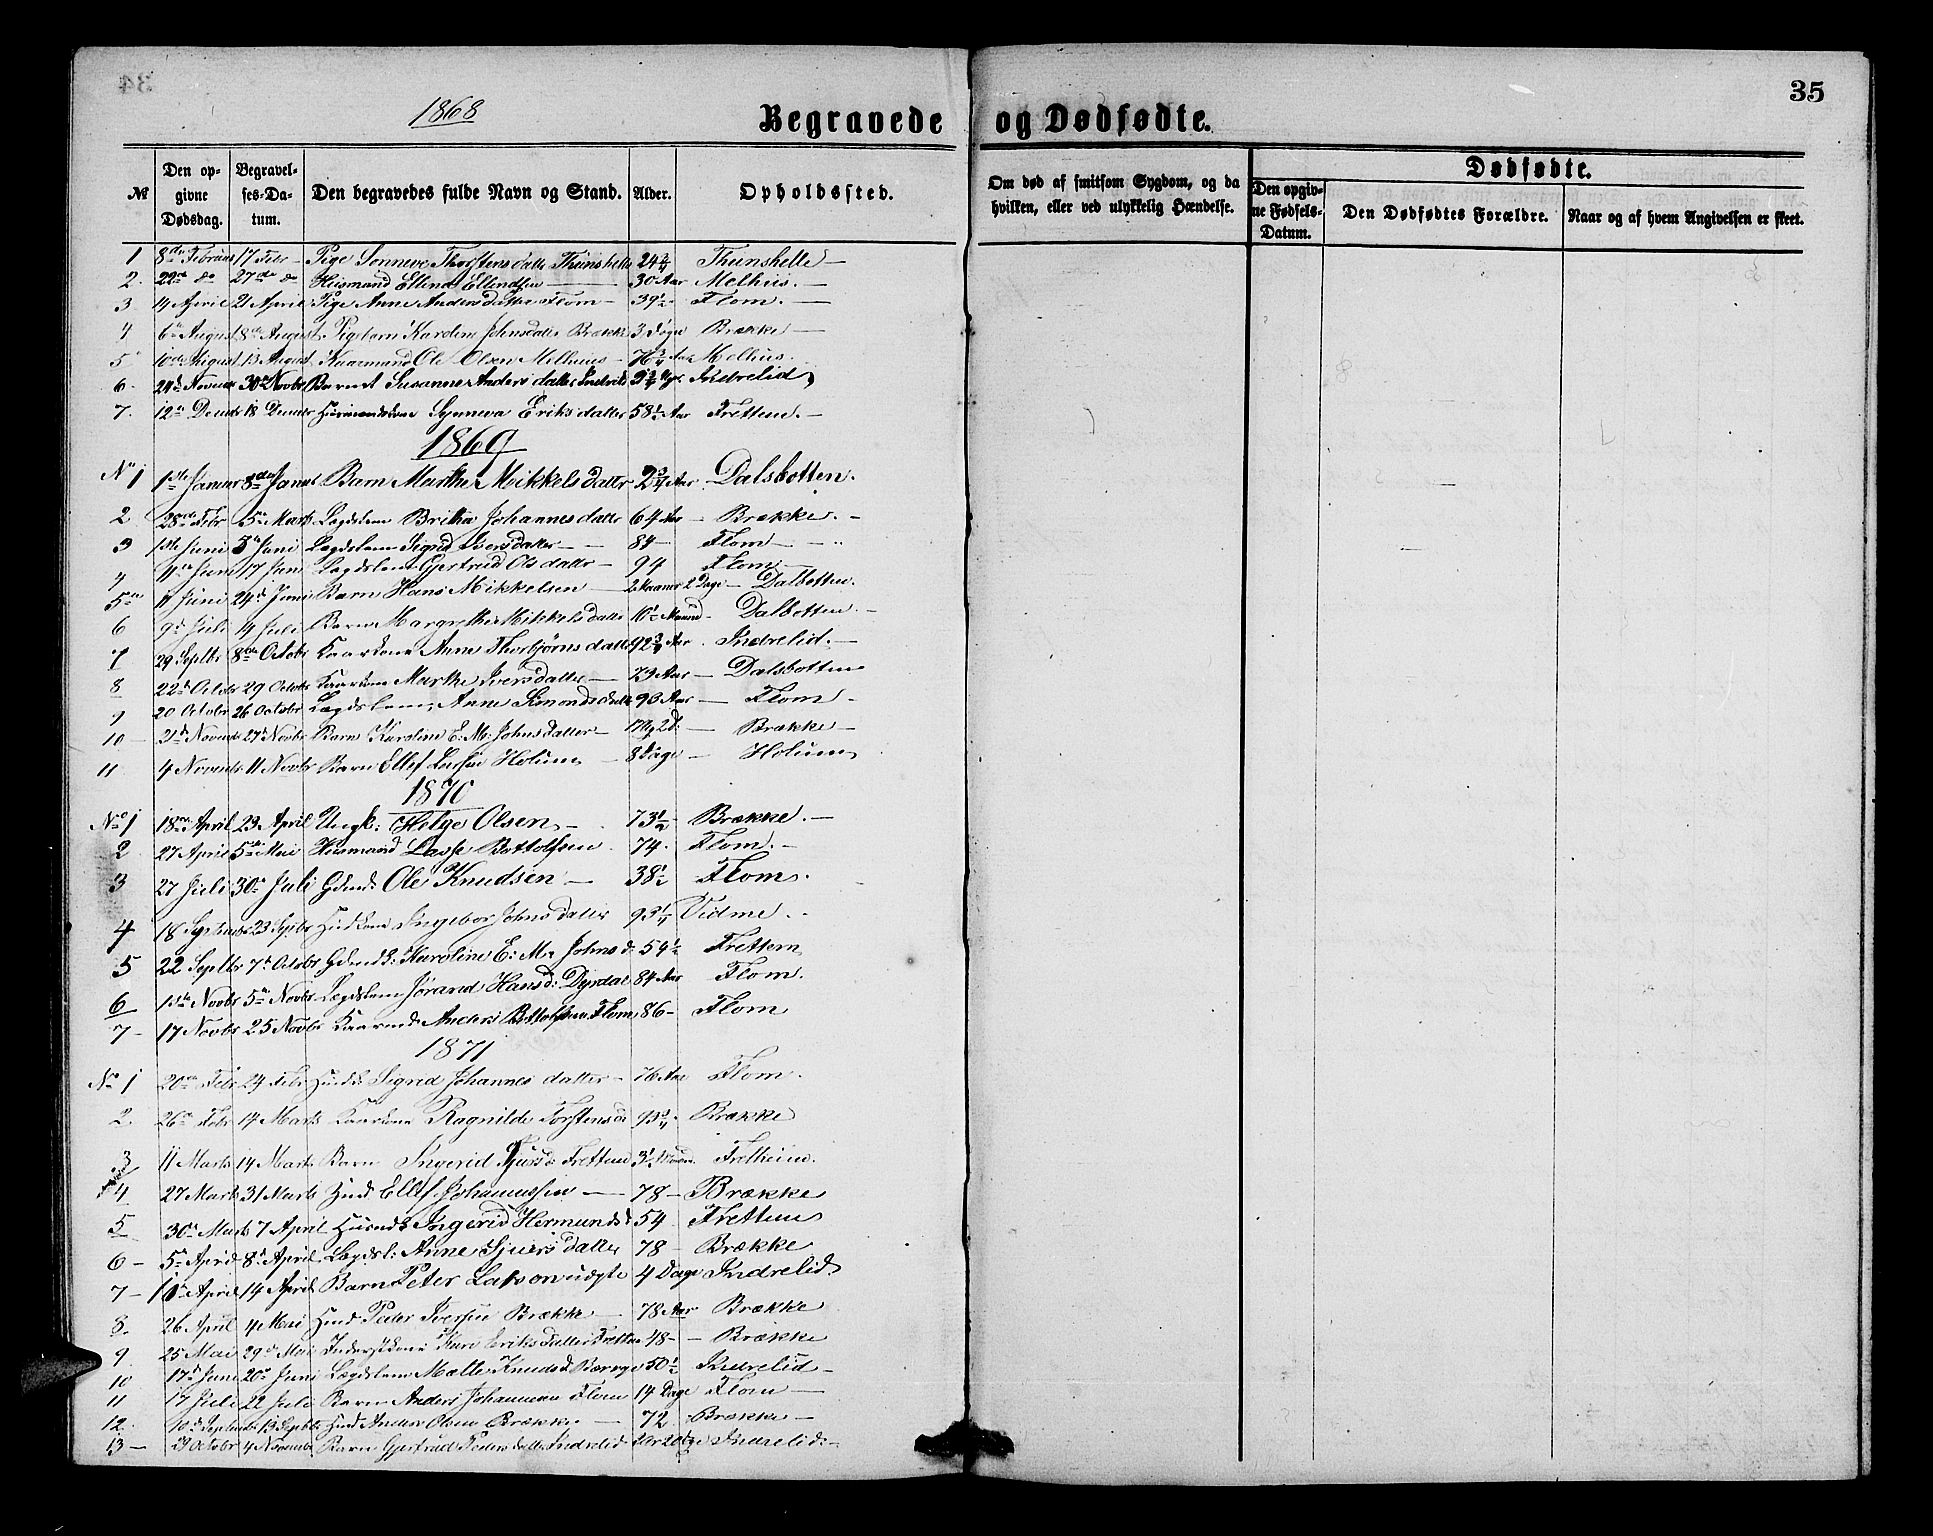 35
1868
Begravede og Dødfødte.
№ Den opgivne Dødsdag. Begravelses-Datum. Den begravedes fulde Navn og Stand. Alder. Opholdssted. Om død af smitsom Sygdom, og da hvilken, eller ved ulykkelig Hændelse. Dødfødte. Den opgivne Fødsels-Datum. Den Dødfødtes Forældre. Naar og af hvem Angivelsen er skeet.
1 8de Februar 17 Febr Pige Sonneve Thorstensdatter 24 3/4
2. 22de do 27de do Huusmand Ellend Ellendsen 30 Aar Melhus.
3 14 April 21 April Pige Anne Andersdatter Flom 39 1/2 Flom.
4 6te August 8de August. Pigebarn Karoline Johnsdatter Brække 3 Døgn Brække
5 10de August 13 August Kaarmand Ole Olsen Melhuus 76 3/4 Aar Melhus.
6. 24de Novemb 30te Novbr Barnet Susanne Andersdatter Indrelid
7. 12te Decmbr 18 Decmbr Huusmandskone Synneva Eriksdatter 58 1/2 Aar Frettun.
1869
No 1 1ste Januar 8de Januar Barn Marthe Mikkelsdatter 2 3/4 Aar Dalsbotten.
2 28de Febr 5te Marts Lægdslem Britha Johannesdatter 64 Aar Brække.
3 1ste Juni 5te Juni Lægdslem Sigrid Iversdatter 84 Flom
4 11te Juni 17 Juni Lægdslem Gjertrud Olsdatter 94 Flom
5te 11 Juni 24de Juni Barn Hans Mikkelsen 2 Maaner 2 Dage Dalbotten.
6 9de Juli 14 Juli Barn Margrethe Mikkelsdatter Dalbotten.
7 29 Septbr 8de Octobr Kaarkone Anne Thorbjørnsdatter 92 3/4 Aar Indrelid.
8 22de Octobr 29 Octobr Kaarkone Marthe Iversdatter 73 Aar Dalsbotten
9 20 Octobr 26 Octobr Lægdslem Anne Simonsdatter 93 Aar Flom
10 21de Novemb 27de Novbr Barn Karoline E: M: Johnsdatter Brække
11 4 Novembr 11 Novbr Barn Ellef Larsen Holum 8 Dage Holum
1870
No 1 18de April 23 April Ungk. Helge Olsen 73 1/2 Brække.
2 27 April 5te Mai Huusmand Lasse Bottolfsen 74. Flom.
3 27 Juli 30te Juli Gdmd: Ole Knudsen 38 1/2 Flom.
4 18 Septembr 23 Septbr Ingebor Johnsdatter 93 1/4 Vidme.
5 22 Septbr 7de Octobr Karoline E: M: Johnsd: 59 1/2 Frettem
6 1ste Novbr 5te Novbr Lægdslem Jørand Hansd: Dyrdal 84 Aar Flom.
7 17 Novbr 25 Novbr Kaarmd Anders Bottolfsen Flom 86 Flom
1871
No 1 20de Febr 24 Febr Sigrid Johannesdatter 76 Aar Flom.
2 26de Febr 14 Marts Kaarkone Ragnilde Torstensd: 93 3/4 Brække
3 11 Marts 14 Marts Barn Ingerid Frettum Fretheim.
4 27 Marts 31 Marts Ellef Johannessen 78 Brække
5 30te Marts 7 April Ingerid Hermundsd 54 Frettun
6 5te April 8de April Lægdsl: Anne Sjursdatter 78 Brække
7 April 14 April Barn Peter Larson udgte 4 Dage Indrelid
8 26 April 4 Mai Peder Iversen Brække 78 Aar Brække
9 25 Mai 29de Mai Inderstkone Kari Eriksdatter Frettun 48 Brække
10 17de Juni 20de Juni Lægdslem Malte Knudsd. 50 1/2 Indrelid
11 17 Juli 22 Juli Barn Anders Johannesen Flom 14 Dage Flom
12. 10de Septembr 13 Septbr Anders Olsen Brække 72 Brække
13 Octobr 4 Novembr Barn Gjertrud Pedersdatter Indrelid Indrelid